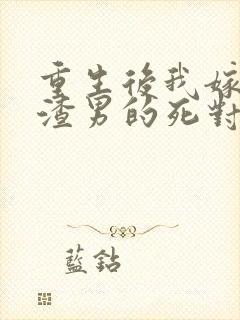 重生後我嫁
渣男的死對
藍鈷